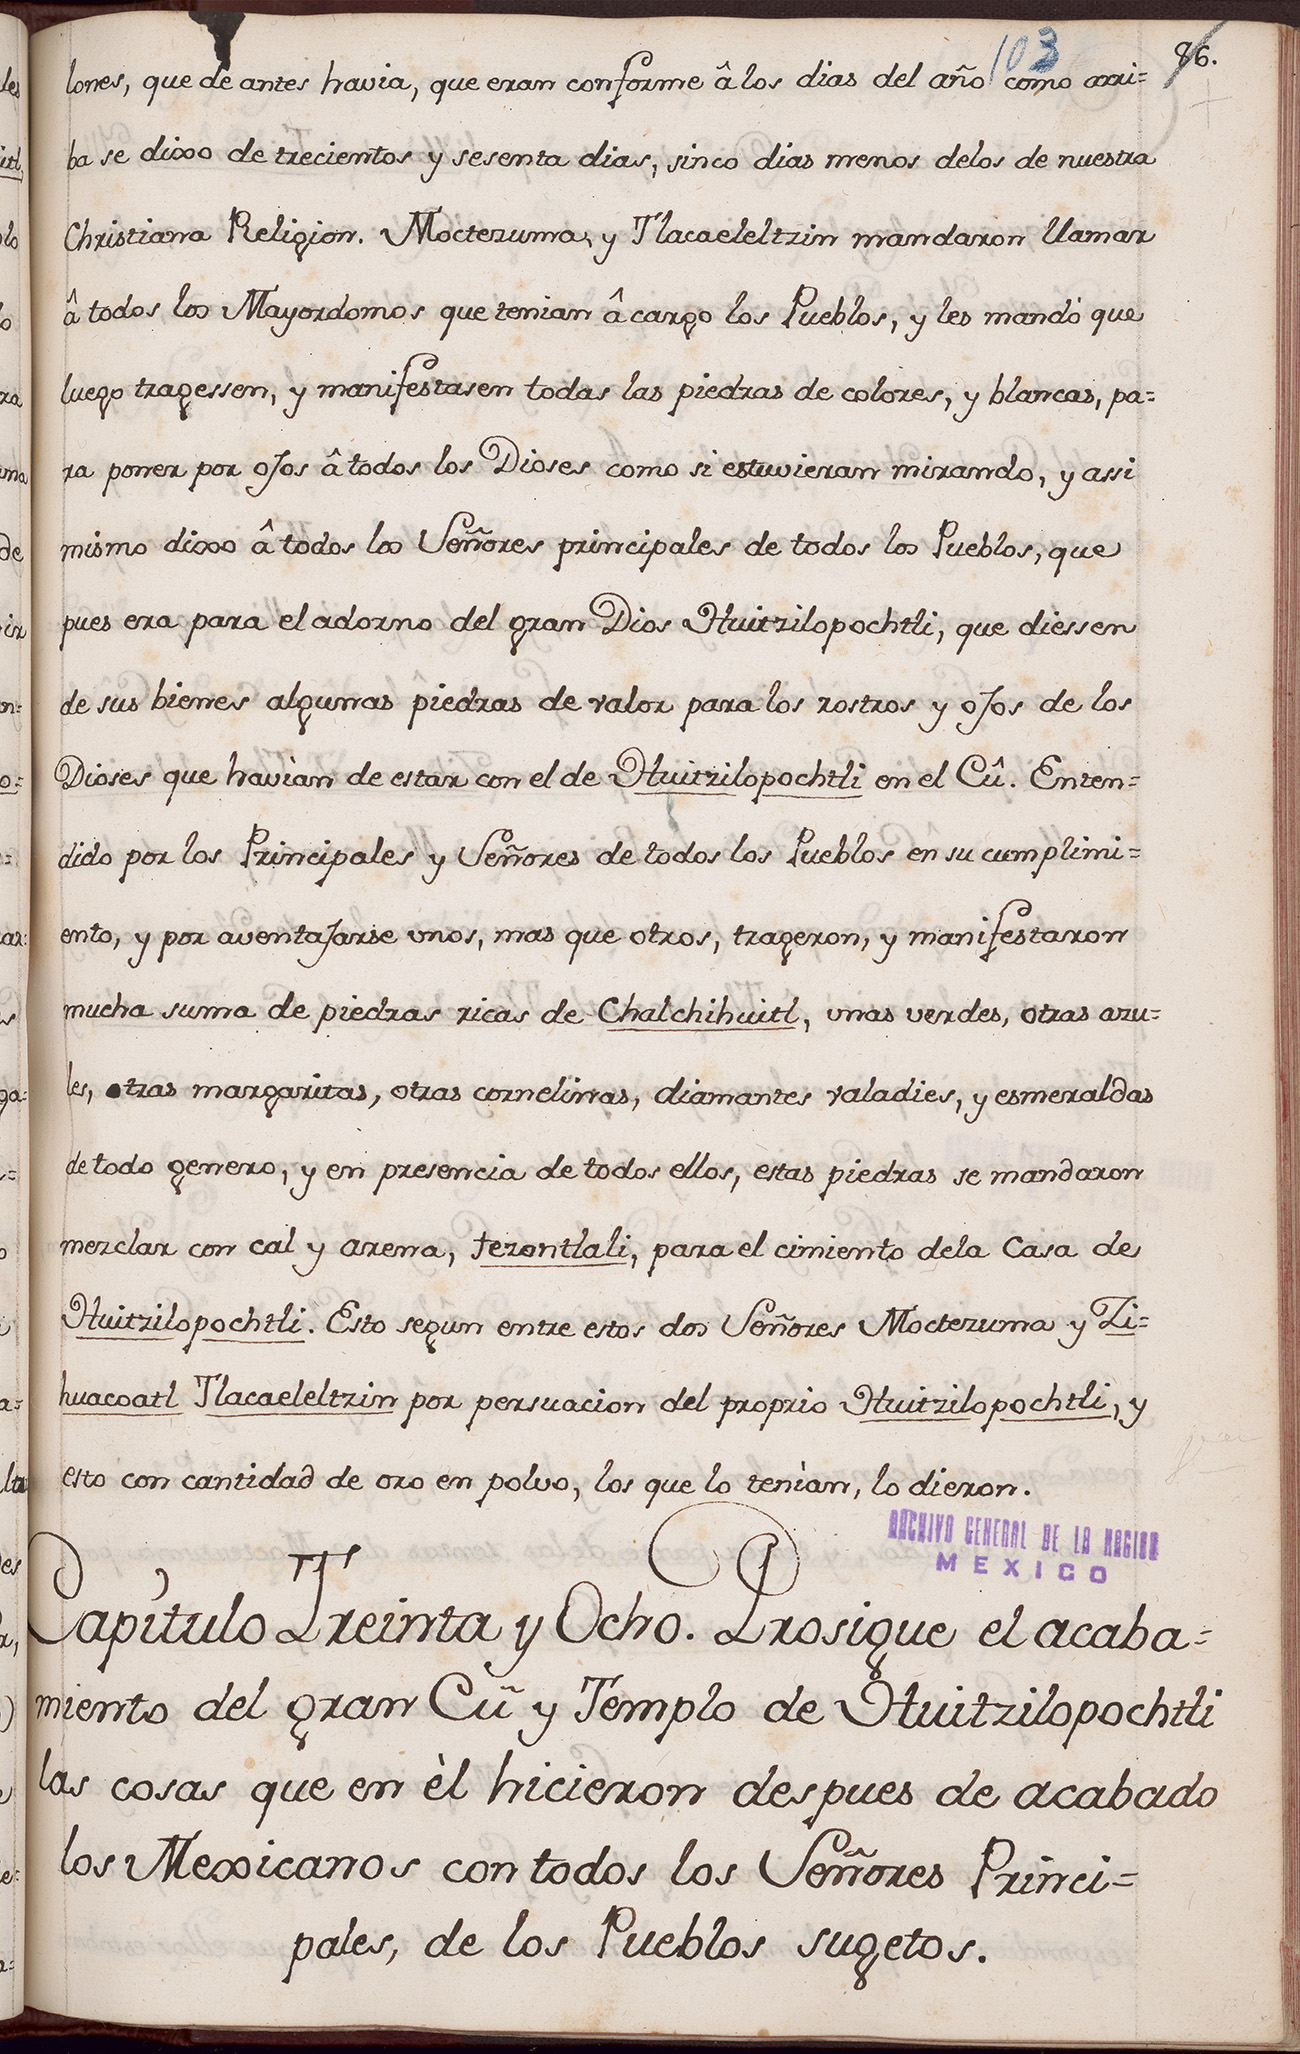 103
86.
lones, que de antes havia, que eran conforme â los dias del año como arri=
ba se dixo de trecientos y sesenta dias, sinco dias menos delos de nuestra
Christiana Religion. Moctezuma, y Tlacaeleltzin mandaron llamar
â todos los Mayordomos que tenian â cargo los Pueblos, y les mandò que
luego tragessen, y manifestasen todas las piedras de colores, y blancas, pa=
ra poner por ojos â todos los Dioses como si estuvieran mirando, y assi
mismo dixo â todos los Señores principales de todos los Pueblos, que
pues era para el adorno del gran Dios Huitzilopochtli, que diessen
de sus bienes algunas piedras de valor para los rostros y ojos de los
Dioses que havìan de estar con el de Huitzilopochtli en el Cû. Enten=
dido por los Principales y Señores de todos los Pueblos en su cumplimi=
ento, y por aventajarse unos, mas que otros, trageron, y manifestaron
mucha suma de piedras ricas de Chalchihuitl, unas verdes, otras azu=
les, otras margaritas, otras cornelinas, diamantes valadies, y esmeraldas
de todo genero, y en presencia de todos ellos, estas piedras se mandaron
mezclar con cal y arena, tezontlali, para el cimiento dela Casa de
Huitzilopochtli. Esto segun entre estos dos Señores Moctezuma y Zi=
huacoatl Tlacaeleltzin por persuacion del proprio Huitzilopochtli, y
esto con cantidad de oro en polvo, los que lo tenìan, lo dieron.
ARCHIVO GENERAL DE LA NACION
MEXICO
Capítulo Treinta y Ocho. Prosigue el acaba=
miento del gran Cũ y Templo de Huitzilopochtli
las cosas que en èl hicieron despues de acabado
los Mexicanos con todos los Señores Princi=
pales, de los Pueblos sugetos.